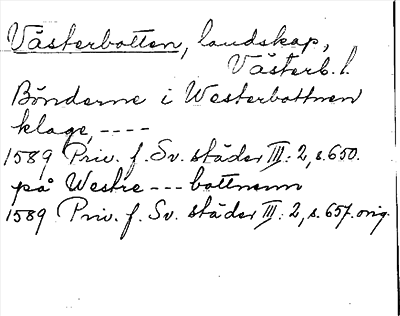 Västerbotten, landskap,
Västerb. l.
Bönderne i Westerbottnen
klage, ----
1589 Priv. f. Sv. städer III: 2, s. 650.
på Westre --- bottnenn
1589 Priv. f. Sv. städer III: 2, s. 657. orig.